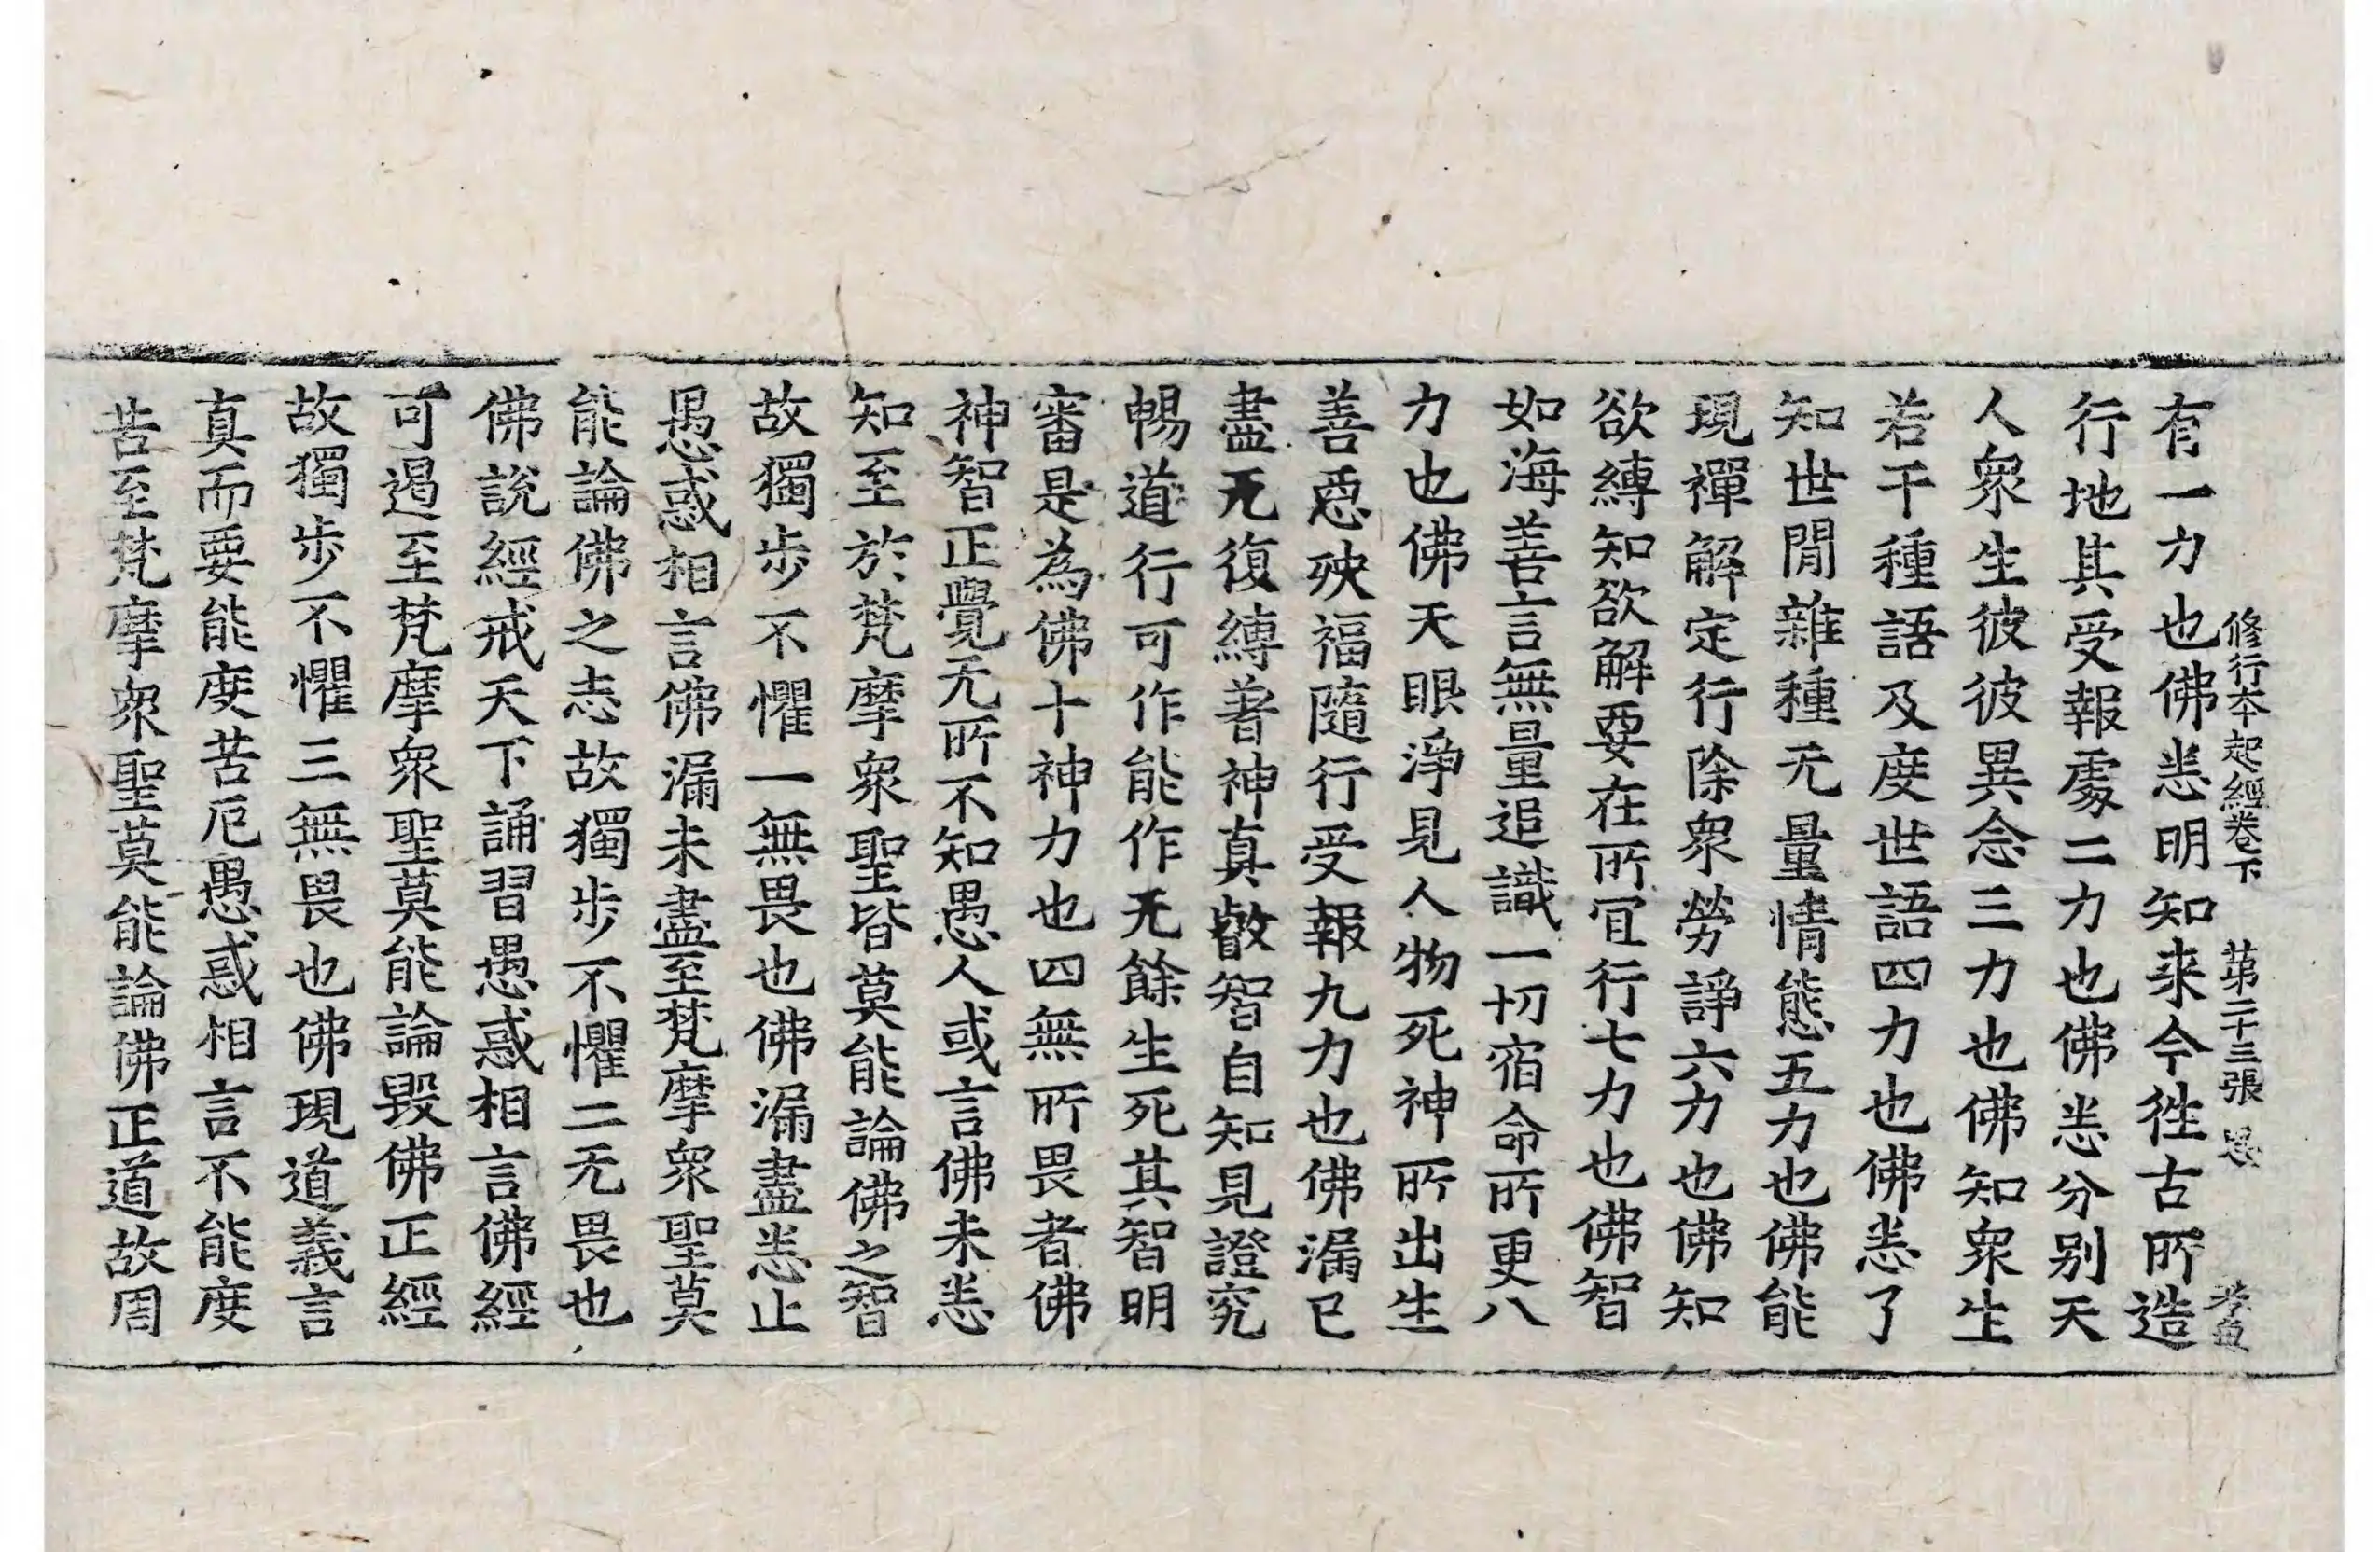 修行夲起經卷下 苐二十三張 恩
有一力也佛悉明知来今徃古所造
行地其受報處二力也佛悉分別天
人衆生彼彼異念三力也佛知衆生
若干種語及度世語四力也佛悉了
知世閒雜種无量情態五力也佛能
現禪解定行除衆勞諍六力也佛知
欲縛知欲解要在所冝行七力也佛智
如海善言無量追識一切宿命所更八
力也佛天眼淨見人物死神所出生
善惡殃福隨行受報九力也佛漏已
盡无復縛著神真叡智自知見證究
暢道行可作能作无餘生死其智明
審是為佛十神力也四無所畏者佛
神智正覺无所不知愚人或言佛未悉
知至於梵摩衆聖皆莫能論佛之智
故獨步不懼一無畏也佛漏盡悉止
愚惑相言佛漏未盡至梵摩衆聖莫
能論佛之志故獨步不懼二无畏也
佛說經戒天下誦習愚惑相言佛經
可遏至梵摩衆聖莫能論毀佛正經
故獨步不懼三無畏也佛現道義言
真而要能度苦厄愚惑相言不能度
苦至梵摩衆聖莫能論佛正道故周